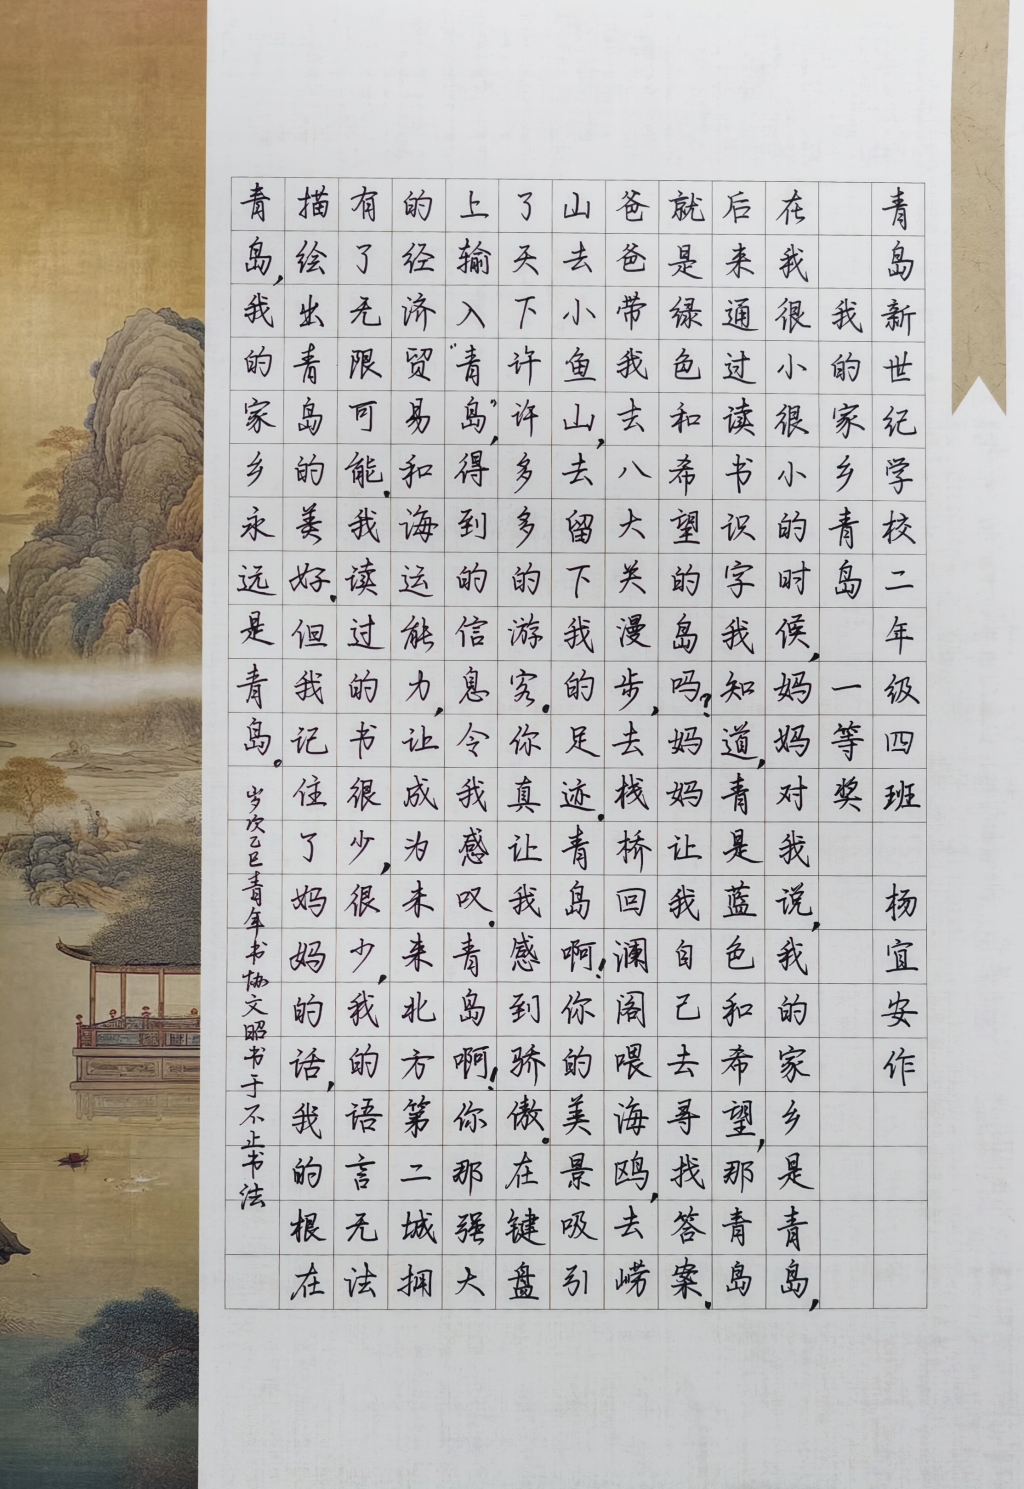 青岛新世纪学校二年级四班 杨宜安作
我的家乡青岛 一等奖
在我很小很小的时候,妈妈对我说,我的家乡是青岛,
后来通过读书识字我知道,青是蓝色和希望,那青岛
就是绿色和希望的岛吗?妈妈让我自己去寻找答案.
爸爸带我去八大关漫步,去栈桥回澜阁喂海鸥,去崂
山去小鱼山,去留下我的足迹.青岛啊!你的美景吸引
了天下许许多多的游客.你真让我感到骄傲.在键盘
上输入“青岛”,得到的信息令我感叹.青岛啊!你那强大
的经济贸易和海运能力,让成为未来北方第二城拥
有了无限可能.我读过的书很少,很少,我的语言无法
描绘出青岛的美好.但我记住了妈妈的话,我的根在
青岛,我的家乡永远是青岛。
岁次乙巳青年书协文昭书于不止书法